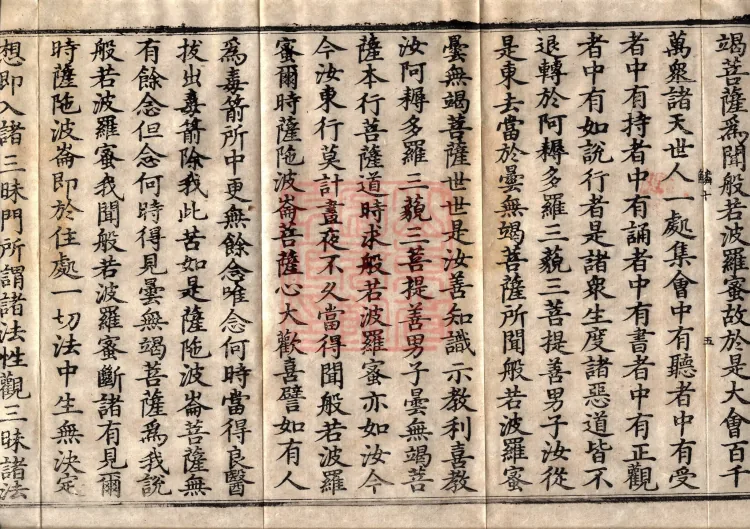 竭菩薩為聞般若波羅蜜故於是大會百千
萬眾諸天世人一處集會中有聽者中有受
者中有持者中有誦者中有書者中有正觀
者中有如說行者是諸眾生度諸惡道皆不
退轉於阿耨多羅三藐三菩提善男子汝從
是東去當於曇無竭菩薩所聞般若波羅蜜
曇無竭菩薩世世是汝善知識示教利喜教
汝阿耨多羅三藐三菩提善男子曇無竭菩
薩本行菩薩道時求般若波羅蜜亦如汝今
今汝東行莫計晝夜不久當得聞般若波羅
蜜爾時薩陁波崙菩薩心大歡喜譬如有人
為毒箭所中更無餘念唯念何時當得良醫
拔出毒箭除我此苦如是薩陁波崙菩薩無
有餘念但念何時得見曇無竭菩薩為我說
般若波羅蜜我聞般若波羅蜜斷諸有見爾
時薩陁波崙即於住處一切法中生無決定
想即入諸三昧門所謂諸法性觀三昧諸法
十
五